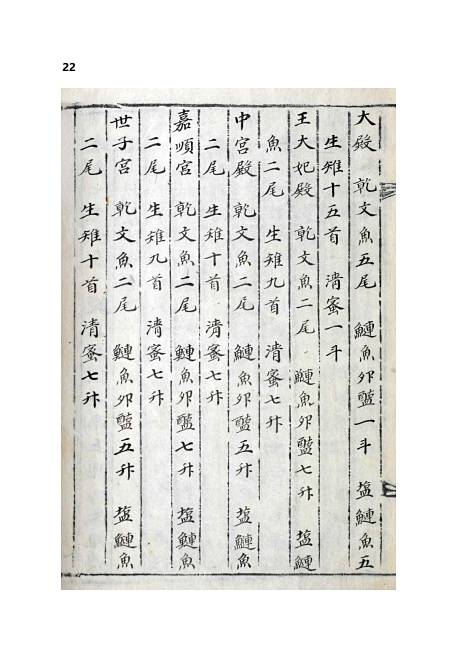 22
大殿 乾文魚五尾 鰱魚卵醢一斗 塩鰱魚五
生雉十五首 清蜜一斗
王大妃殿 乾文魚二尾 鰱魚卵醢七升 塩鰱
魚二尾 生雉九首 清蜜七升
中宮殿 乾文魚二尾 鰱魚卵醢五升 塩鰱魚
二尾 生雉十首 清蜜七升
嘉順宮 乾文魚二尾 鰱魚卵醢七升 塩鰱魚
二尾 生雉九首 清蜜七升
世子宮 乾文魚二尾 鰱魚卵醢五升 塩鰱魚
二尾 生雉十首 清蜜七升